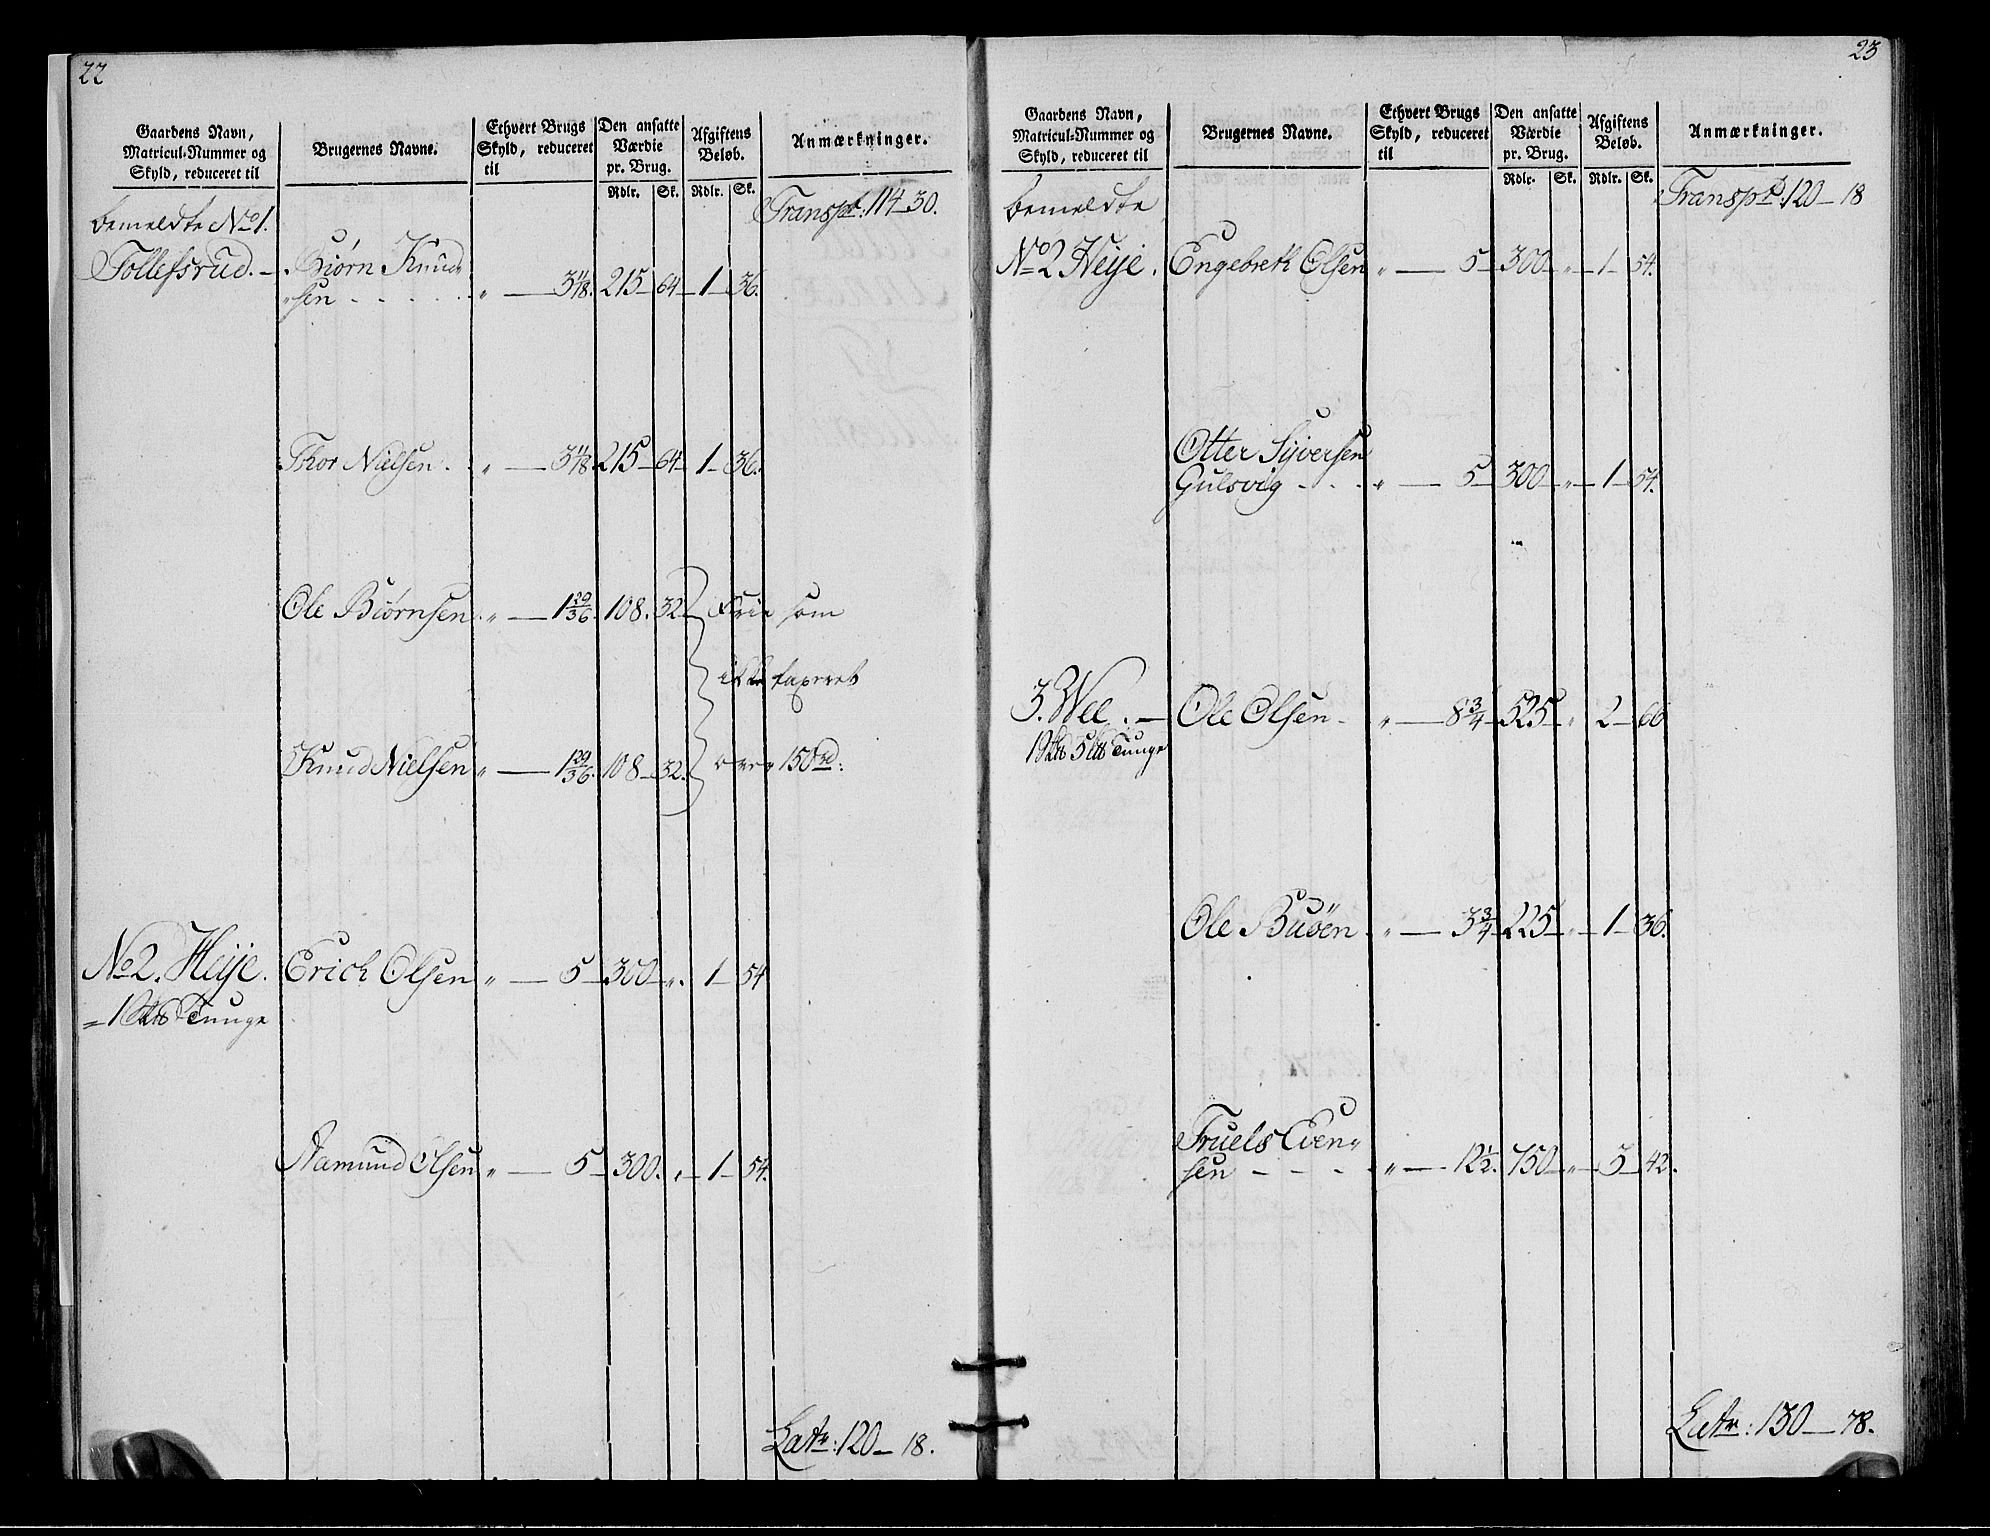 22
Gaardens Navn,
Matricul-Nummer og
Skyld, reduceret til
Brugernes Navne.
Ethvert Brugs
Skyld, reduceret
til
Den ansatte
Værdie
pr. Brug.
Rdlr. Sk.
Afgiftens
Beløb.
Rdlr. Sk.
Anmærkninger.
Transpt: 114-30.
bemeldte No 1.
Tollefsrud. - Biørn Knud-
sen - - - - „ — 3 11/18. 215 - 64 - 1 - 36.
Thor Nielsen. „ — 3 11/18. 215 - 64 - 1 - 36.
Ole Biørnsen. „ — 1 29/36. 108. 32. Frie som
ikke taxeret
Knud Nielsen „ — 1 29/36. 108 - 32. over 150 rd:
No 2. Heije. Erich Olsen „ — 5 - 300 - „. 1 - 54
= 1 Tunge
Aamund Olsen „ — 5 - 300. „ - 1 - 54.
Latr: 120 - 18.
23
Gaardens Navn,
Matricul-Nummer og
Skyld, reduceret til
Brugernes Navne.
Ethvert Brugs
Skyld, reduceret
til
Den ansatte
Værdie
pr. Brug.
Rdlr. Sk.
Afgiftens
Beløb.
Rdlr. Sk.
Anmærkninger.
Transpt: 120 - 18
bemeldte
No 2 Heije. Engebreth Olsen „ — 5 - 300 - „ - 1 - 54.
Otter Syversen
Gulsvig - - - „ — 5 - 300 - „ - 1 - 54.
3. Wee. - Ole Olsen - „ — 8 3/4 - 525 - „ 2 - 66
Tunge
Ole Busöen. „ — 3 3/4 - 225 - „ - 1 - 36.
Truels Even-
sen - - - - „ — 12 1/2. 750 - „ - 3 - 42.
Latr: 130 - 78.